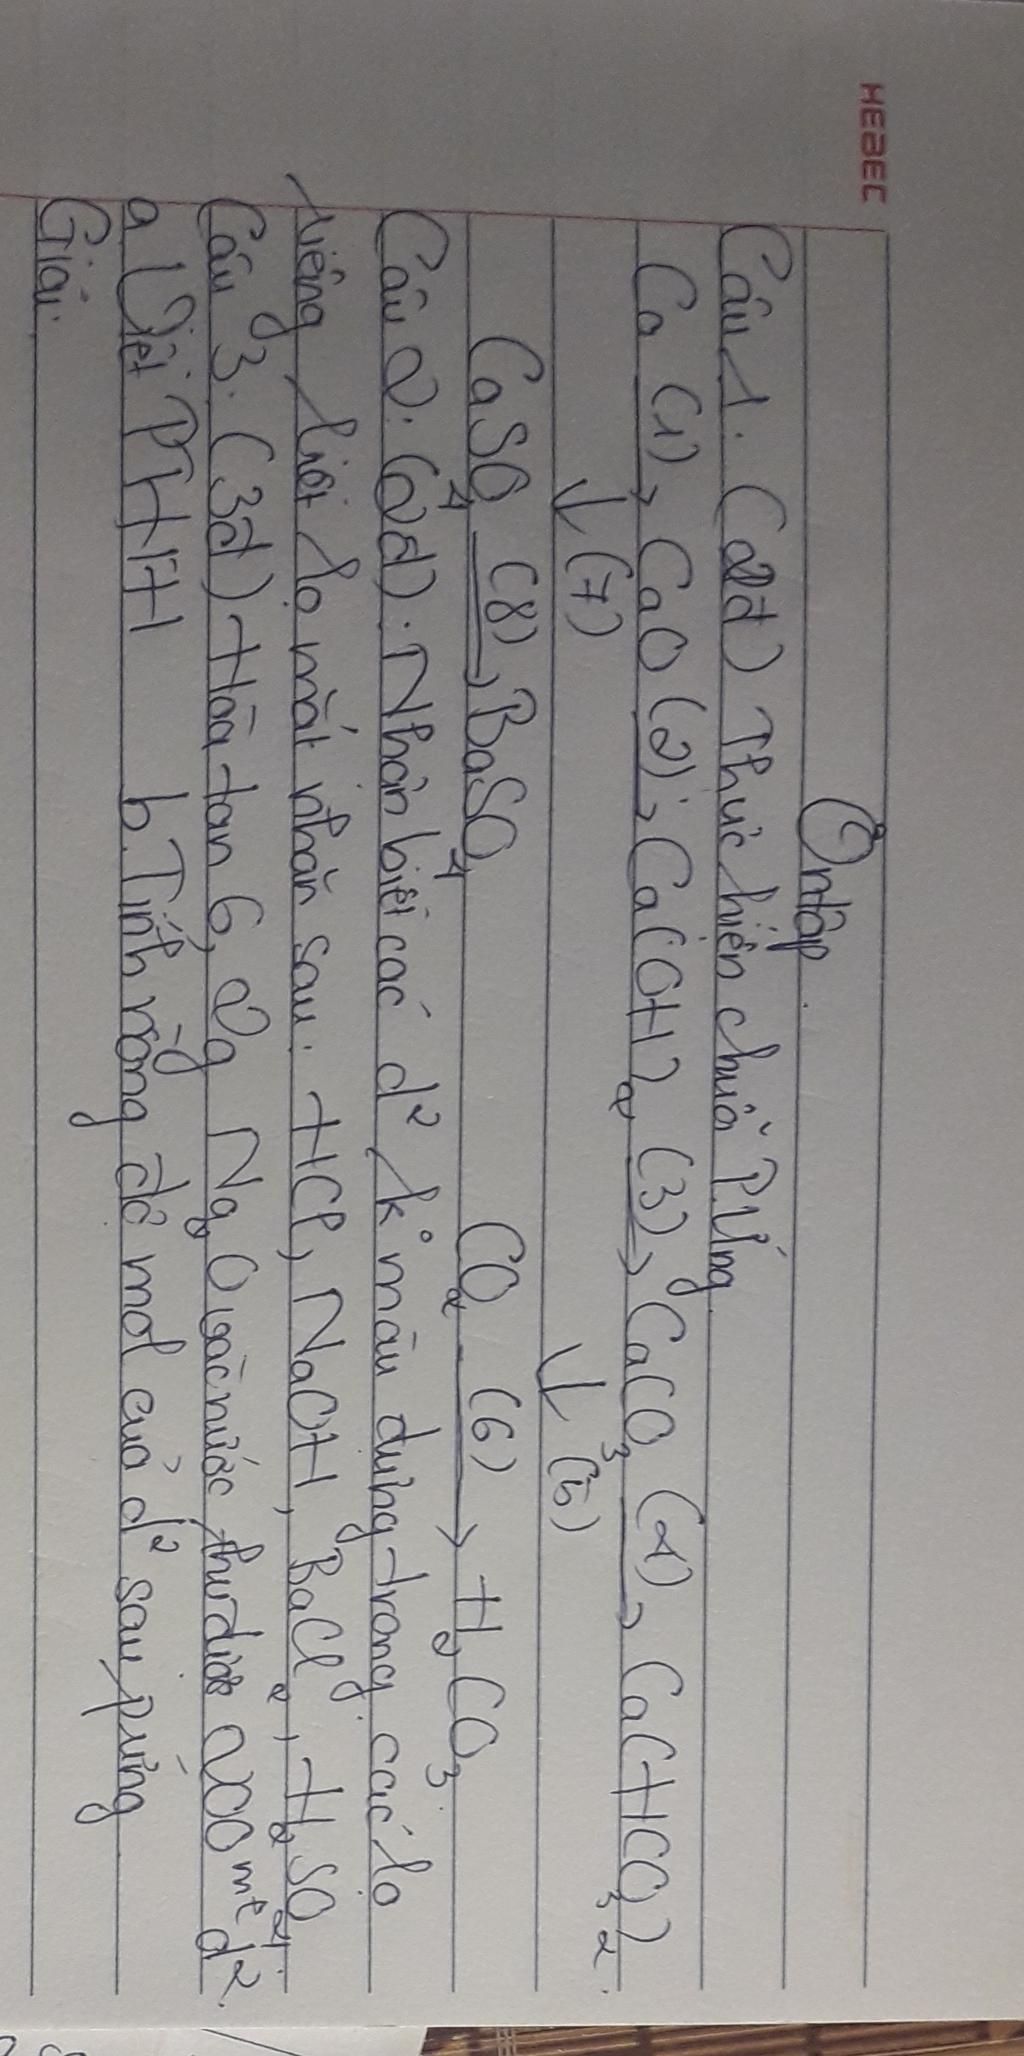 HEBEC
Ôn tập
Câu 1. (2đ) Thực hiện chuỗi P.Ứng
Ca (1)→ CaO (2)→ Ca(OH)₂ (3)→ CaCO₃ (4)→ Ca(HCO₃)₂.
↓(7) ↓(5)
CaSO₄ (8)→ BaSO₄ CO₂ (6)→ H₂CO₃.
Câu 2. (2đ): Nhận biết các d² k° màu đựng trong các lọ
riêng biệt lọ mất nhãn sau: HCl, NaOH, BaCl₂, H₂SO₄.
Câu 3. (3đ) Hòa tan 6,2g Na₂O vào nước, thu được 200ml d².
a Viết PTHH b. Tính nồng độ mol của d² sau p.ứng
Giải.